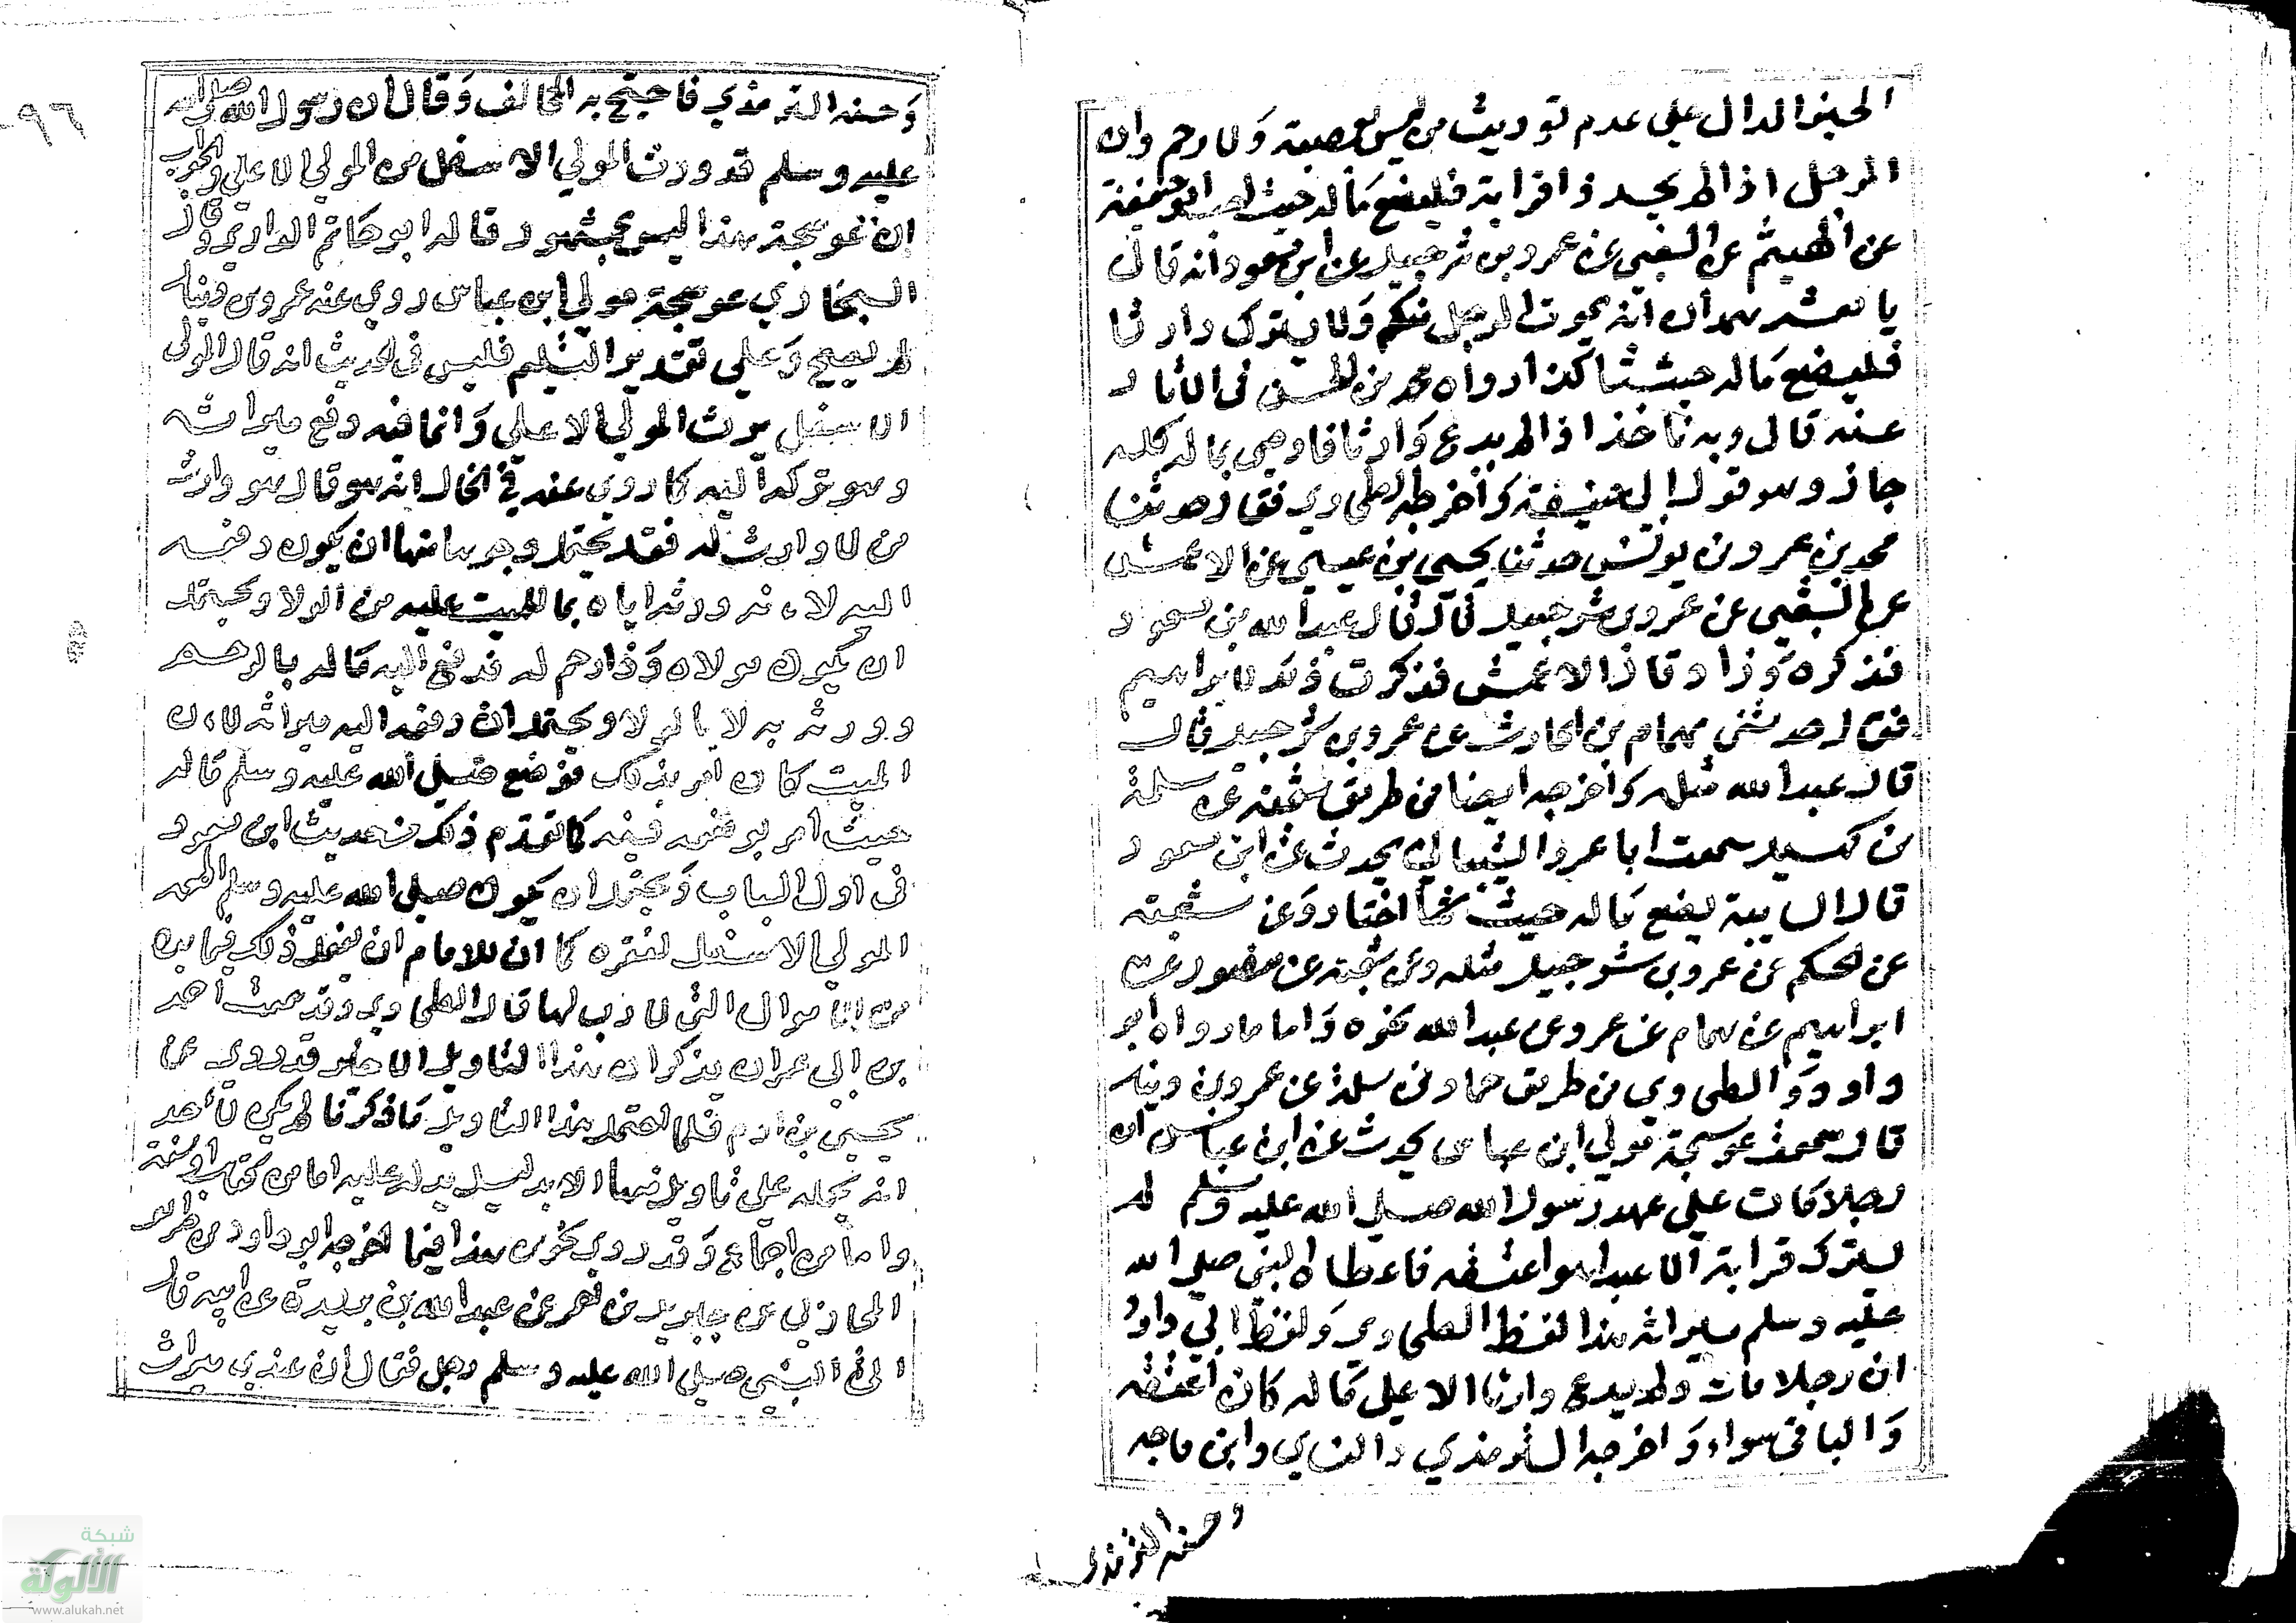 الخبر الدال على عدم توريث من ليس بعصبة وَلا رحم وان
الرجل اذا لم يجد ذا قرابة فليضع مَاله حيث احب ابو حنيفة
عن الهيثم عن الشعبي عن عمرو بن شرحبيل عن ابن مسعود انه قال
يا معشر همدان انه يموت الرجل منكم وَلا يترك وارثا
فليضع مَاله حيث شا كذا رواه محمد بن الحسن في الأثار
عنه قال وبه نأخذ اذا لم يدع وَارثا فاوصى بماله كله
جاز وهو قول ابي حنيفة وَأخرجه الطحاوي فقال حدثنا
محمد بن عمرو بن يونس حدثنا يحيى بن عيسى عن الاعمش
عن الشعبي عن عمرو بن شرحبيل قال قال عبد الله بن مسعود
فذكره وَزاد قال الاعمش فذكرت ذلك لابراهيم
فقال حدثني همام بن الحارث عن عمرو بن شرحبيل قال
قال عبد الله مثله وَاخرجه ايضا من طريق شعبة عن سلمة
بن كهيل سمعت أبا عمرو الشيباني يحدث عن ابن مسعود
قال السايبة يضع مَاله حيث شا اختار وَعن شعبة
عن الحكم عن عمرو بن شرحبيل مثله وعن شعبة عن منصور عن
ابراهيم عن همام عن عمرو عن عبد الله نحوه وَاما ما رواه ابو
داود وَالطحاوي من طريق حماد بن سلمة عن عمرو بن دينار
قال سمعت عوسجة مولي ابن عباس يحدث عن ابن عباس ان
رجلا مَات علي عهد رسول الله صلي الله عليه وسلم لم
يترك قرابة الا عبدا هو اعتقه فاعطاه النبي صلي الله
عليه وسلم ميراثه هذا لفظ الطحاوي وَلفظ ابي داود
ان رجلا مات ولم يدع وارثا الا غلامًا له كان أعتقه
وَالباقي سواء وَاخرجه الترمذي والنساي وابن ماجه
وحسنه الترمذي
٩٦
وَحسنه الترمذي فاحتج به المخالف وَقال ان رسول الله صلى الله
عليه وسلم قد ورث المولي الاسفل من المولي الاعلي والجواب
ان عوسجة هذا ليس بمشهور قاله ابو حَاتم الرازي وقال
البخاري عوسجة مولي ابن عباس روي عنه عمرو بن دينار
لم يصح وَعلي تقدير التسليم فليس في الحديث انه قال المولى
الاسفل يرث المولي الاعلي وَانما فيه دفع ميراثه
وهو تركه اليه كما روي عنه في الخال انه هو قال هو وارث
من لا وارث له فقد يحتمل وجوها منها ان يكون دفعه
اليه لانه ورثه اياه بما للميت عليه من الولا ويحتمل
ان يكون مولاه وَذا رحم له فدفع اليه مَاله بالرحم
وورثه به لا بالولا ويحتمل ان دفعه اليه ميراثه لان
الميت كان امر بذلك فوضع صلي الله عليه وسلم مَاله
حيث امر بوضعه فيه كما تقدم ذلك في حديث ابن مسعود
في اول الباب وَيحتمل ان يكون صلي الله عليه وسلم اطعمه
المولي الاسفل لفقره كما ان للامام ان يفعل ذلك فيما يده
من الاموال التي لا رب لها قال الطحاوي وقد سمعت احمد
بن ابي عمران يذكر ان هذا التاويل الاخر قد روي عن
يحيى بن ادم فلما احتمل هذا التاويل مَا ذكرنا لم يكن لأحد
انه يحمله علي تاويل منها الا بدليل يدله عليه اما من كتاب او سنة
واما من اجماع وَقد روي نحو من هذا فيما اخرجه ابو داود من طريق
المحاربي عن جبريل بن احمر عن عبد الله بن بريدة عن ابيه قال
اتى النبي صلي الله عليه وسلم رجل فقال ان عندي ميراث
شبكة
الألوكة
www.alukah.net